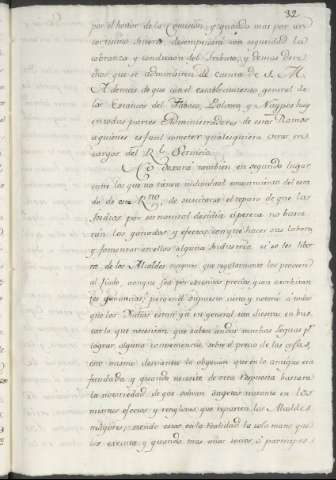 32
por el honor de la Comision, y quando mas por un
cortisimo sueldo desempeñara con seguridad la
cobranza, y conduccion del Tributo, y demas dere-
chos que se administren de cuenta de S. M.
A demas de que con el establecimiento general de
los Estancos del Tabaco, Polvora, y Naypes hay
en todas partes Administradores de estos Ramos
a quienes es facil cometer qualesquiera otros en-
cargos del Rl. Servicio.
No dexará tambien en segundo lugar
entre los que no tienen individual conocimiento del esta-
do de este Rno. de suscitarse el reparo de que los
Indios por su natural desidia si pereza no busca-
rán los ganados, y efectos conque hacer sus labores
y fomentar en ellos alguna Industria, si se les liber-
ta de los Alcaldes mayores que regularmente los proveen
al fiado, aunque sea por excesivos precios, y con exorbitan-
tes ganancias; pero en el supuesto cierto y notorio à todos
que los Indios estan ya en general tan diestros en bus-
car lo que necesitan que saben andar muchas leguas pr.
lograr alguna conveniencia sobre el precio de las cosas,
esto mismo desvanece la objecion que en lo antiguo era
fundada, y quando necesite de otra respuesta bastara
la notoriedad de que tienen sugetos tratante en los
mismos efectos y renglones que reparten los Alcaldes
mayores, siendo estos en la realidad la sola mano que
los executa, y quando mas unos socios, ó participes